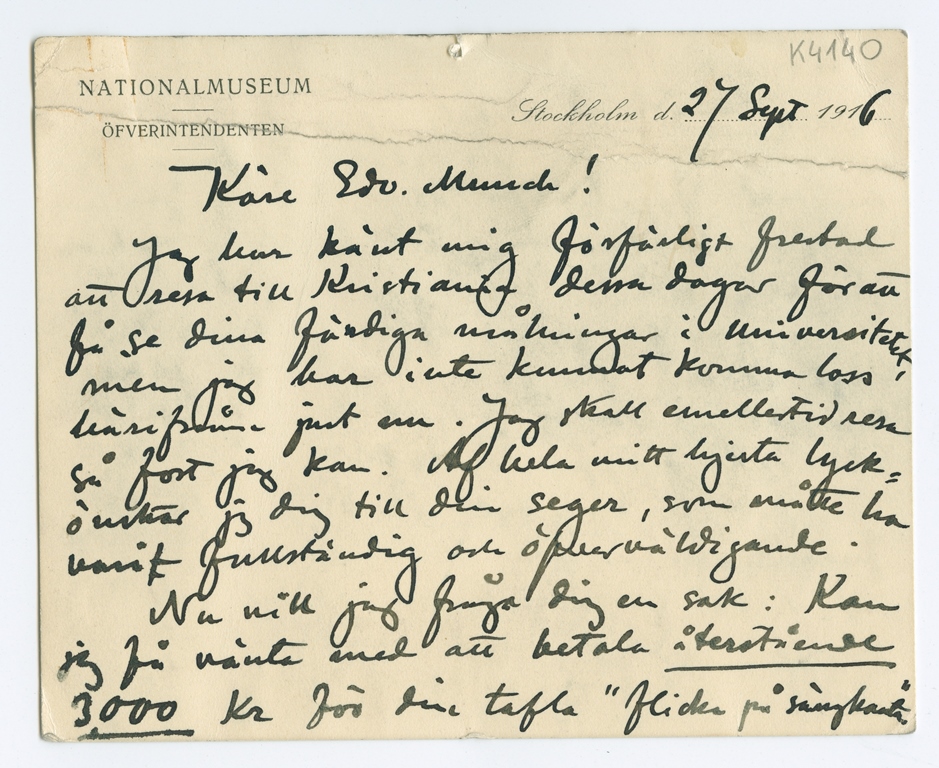 K4140
NATIONALMUSEUM
ÖFVERINTENDENTEN
Stockholm d. 27 Sept 1916
Käre Edv. Munch!
Jag har känt mig förfärligt frestad
att resa till Kristiania dessa dagar för att
få se dina färdiga målningar i universitetet,
men jag har inte kunnat komma loss
härifrån just nu. Jag skall emellertid resa
så fort jag kan. Af hela mitt hjerta lyck=
önskar jag dig till din seger, som måtte ha
varit fullständig och öfverväldigande.
Nu vill jag fråga dig en sak: Kan
jag få vänta med att betala återstående
3000 Kr för din tafla "flicka på sängkant"